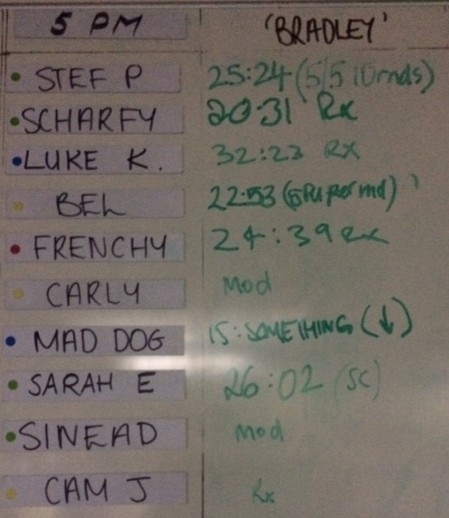 5 PM 'BRADLEY'
STEF P 25:24 (5/5 10rnds)
SCHARFY 20:31 Rx
LUKE K. 32:23 RX
BEL 22:53 (5PU per rnd)
FRENCHY 24:39 Rx
CARLY Mod
MAD DOG 15:SOMETHING (↓)
SARAH E 26:02 (SC)
SINEAD Mod
CAM J Rx